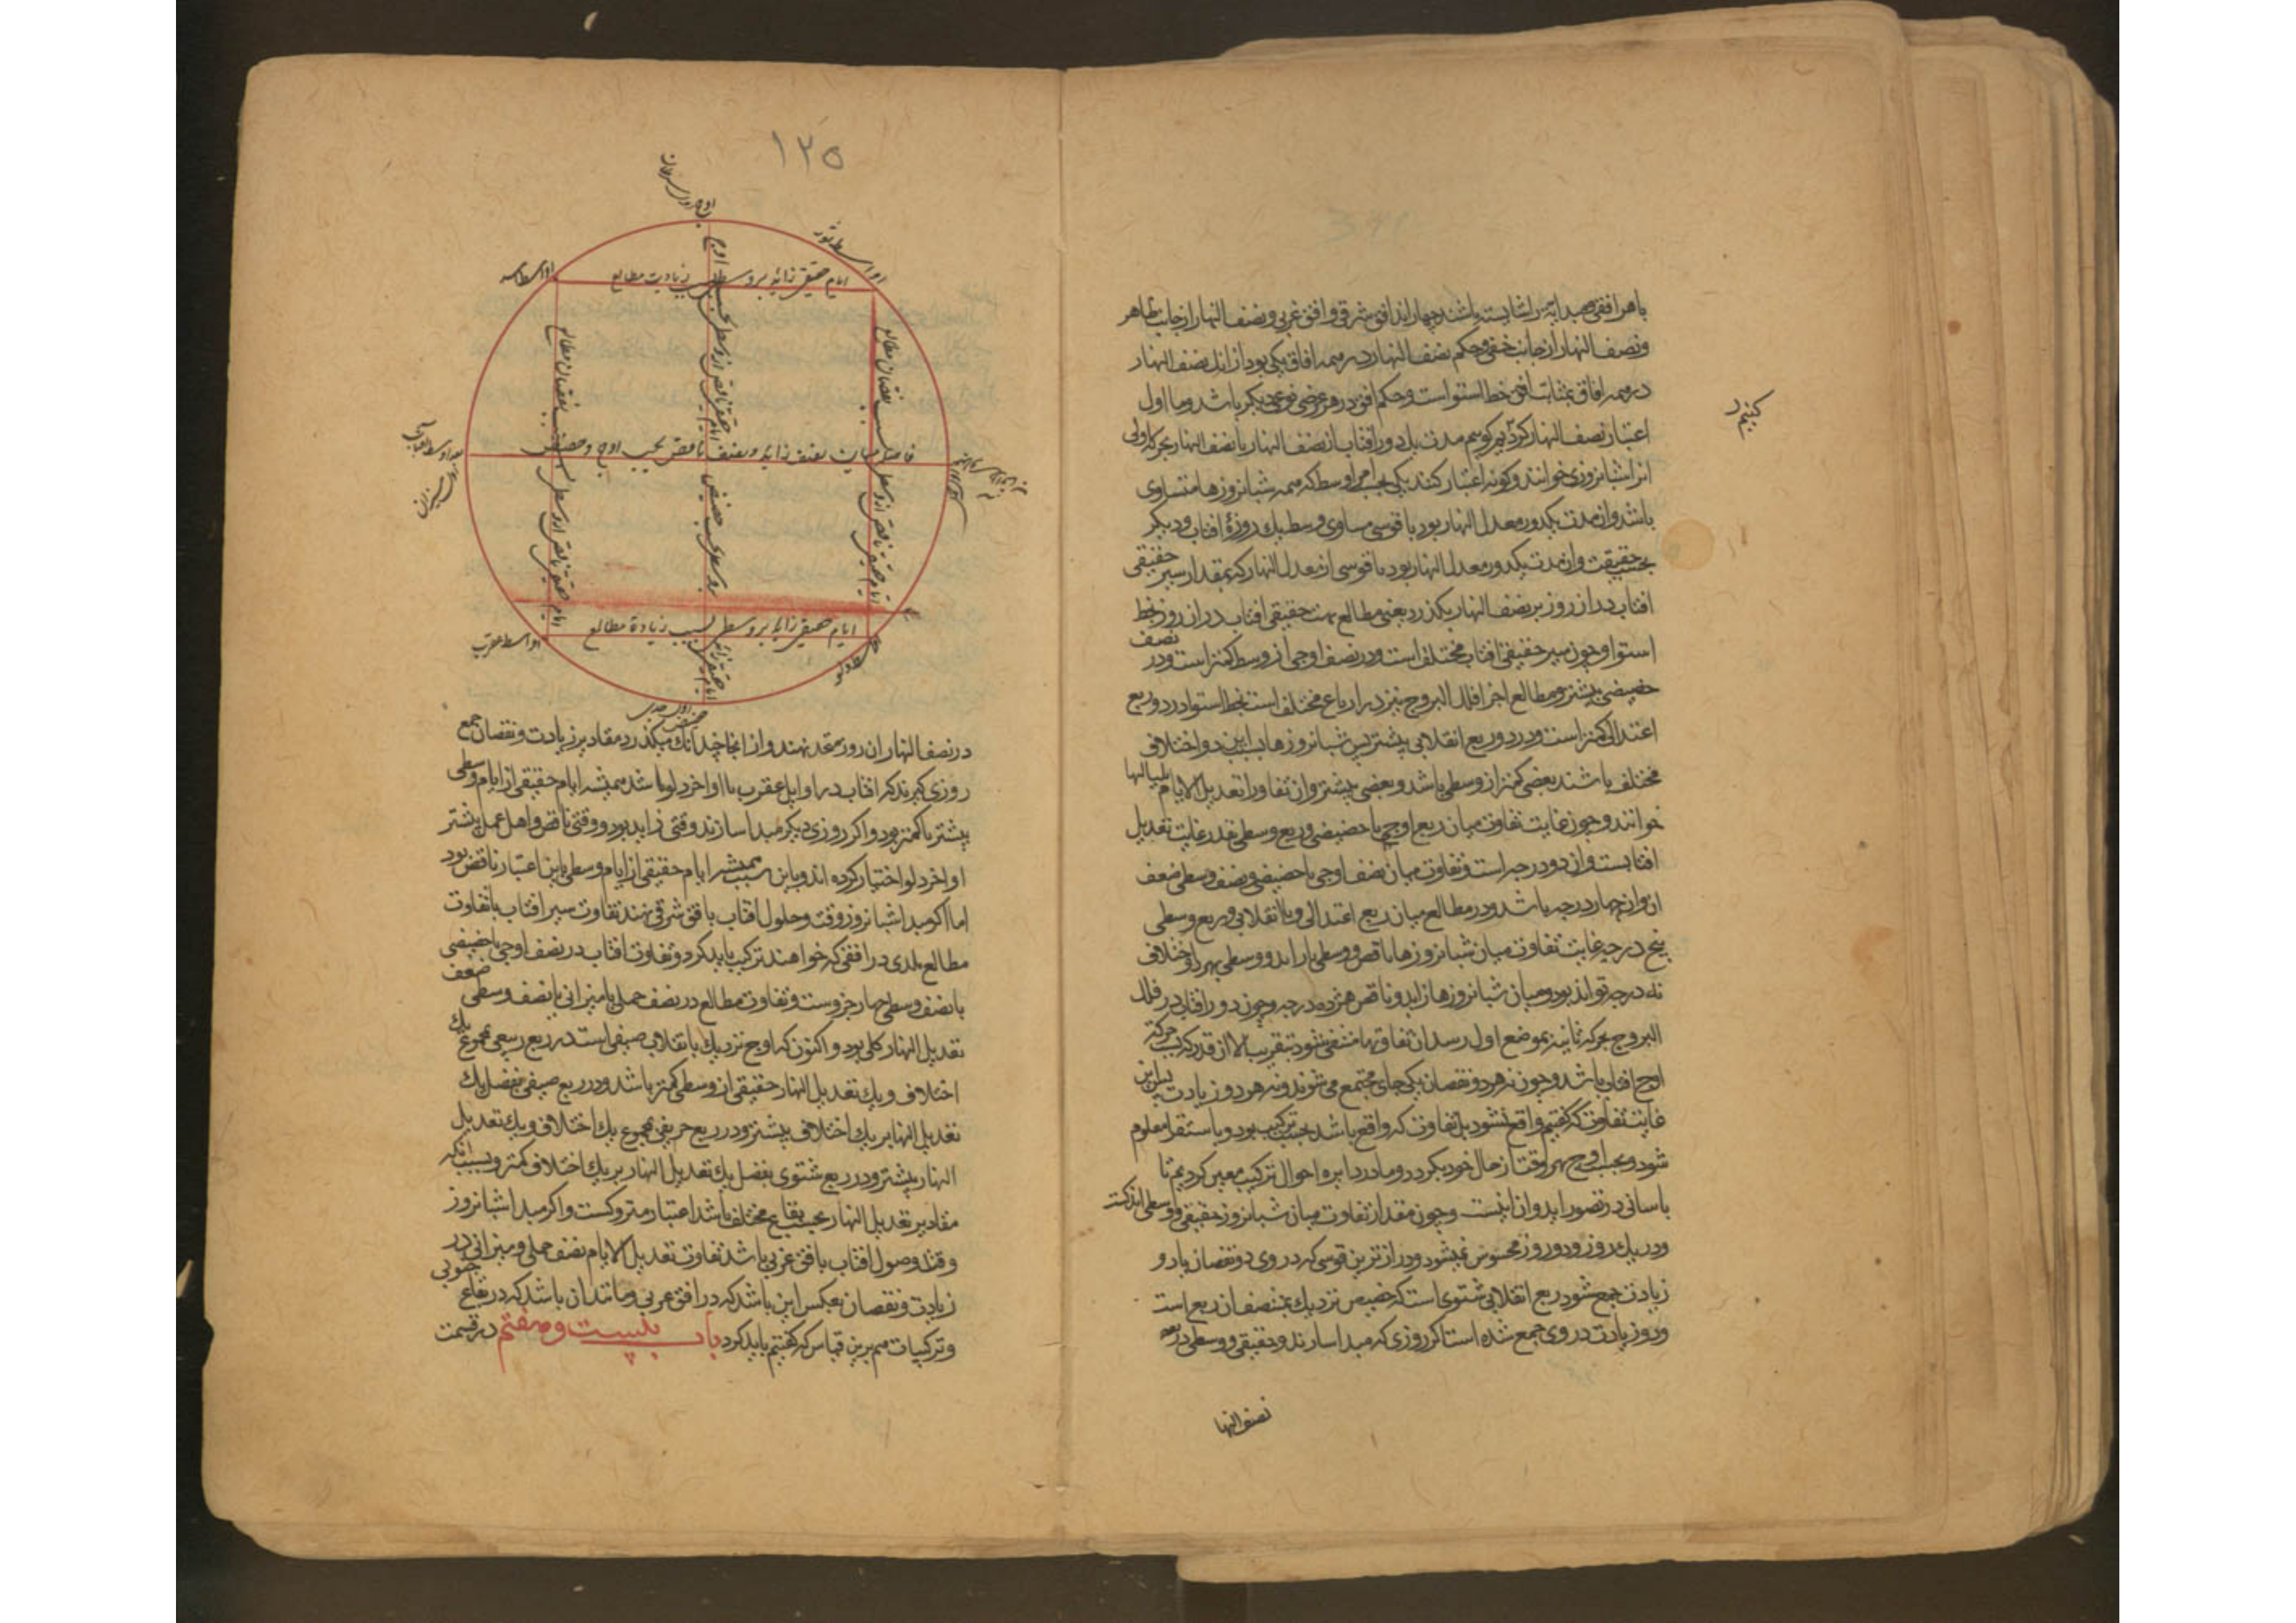 با هر افقی مبدا
ونصف النهار از جانب خفی وحکم نصف النهار در همه افاق یکی بود از انک نصف النهار
در همه افاق بمثابت افق خط استواست وحکم افق در هر عرضی نوعی دیگر باشد وما اول
اعتبار نصف النهار کردیم کوییم مدت یک دور افتاب از نصف النهار تا نصف النهار بحرکه اولی
انرا شبانروزی خوانند و کونه اعتبار کنند یکی بحسب امر اوسط که همه شبانروزها متساوی
باشد وان مدت یکدور معدل النهار بود با قوسی مساوی وسط یک روزۀ افتاب ودیکر
بحسب حقیقت وان مدت یکدور معدل النهار بود با قوسی از معدل النهار که بمقدار سیر حقیقی
افتاب در ان روز بر نصف النهار بکذرد یعنی مطالع بهت حقیقی افتاب در ان روز بخط
استوا و چون سیر حقیقی افتاب مختلف است ودر نصف اوجی از وسط کمتر است ودر نصف
حضیضی بیشتر ومطالع اجزا فلک البروج نیز در ارباع مختلف است بخط استوا در دو ربع
اعتدالی کمتر است ودر دو ربع انقلابی بیشتر پس شبانروزها باین دو اختلاف
مختلف باشند بعضی کمتر از وسطی باشد و بعضی بیشتر وان تفاوت را تعدیل الایام بلیالیها
خوانند و چون غایت تفاوت میان ربع اوجی یا حضیضی وربع وسطی بقدر غایت تعدیل
افتابست وان دو درجه است وتفاوت میان نصف اوجی یا حضیضی ونصف وسطی ضعف
ان وان چهار درجه باشد ودر مطالع میان ربع اعتدالی ویا انقلابی و ربع وسطی
پنج درجه غایت تفاوت میان شبانروزها ناقص ووسطی یا زاید و وسطی بهر دو اختلاف
نه درجه تواند بود ومیان شبانروزها زاید وناقص هژده درجه وچون دور افتاب در فلک
البروج بحرکه ثانیه بموضع اول رسد ان تفاوتها منتفی شود بتقریب الا ان قدر که بسبب حرکه
اوج افتاب باشد وچون نه هر دو نقصان یکی جای مجتمع می شوند ونه هر دو زیادت پس این
غایت تفاوت که کفتیم واقع نشود بل تفاوت که واقع باشد بحسب ترکیب بود وباستقرا معلوم
شود و بحسب اوج بهر وقت از حال خود بکردد وما در دایره احوال ترکیب معین کردیم تا
باسانی در تصور اید وان اینست وچون مقدار تفاوت میان شبانروز حقیقی و وسطی اندکست
ودر یک روز ودو روز محسوس نمیشود ودرازترین قوسی که در وی دو نقصان یا دو
زیادت جمع شود ربع انقلابی شتوی است که حضیض نزدیک بمنتصف ان ربع است
ودو زیادت در وی جمع شده است اکر روزی که مبدا سازند وحقیقی ووسطی در
نصف النها
۱۲۵
اوج اول سرطان
اواسط ثور
ایام حقیقی زاید بر وسطی بسبب زیادت مطالع
ایام حقیقی ناقص از وسطی بسبب نقصان مطالع
ایام حقیقی ناقص از وسطی بحسب اوج
فاصله میان نصف زاید و نصف ناقص بحسب اوج و حضیض
ایام حقیقی ناقص از وسطی بسبب نقصان مطالع
ایام حقیقی زاید بر وسطی بسبب حضیض
ایام حقیقی زاید بر وسطی بسبب زیادة مطالع
اواسط عقرب
حضیض اول جدی
در نصف النهار ان روز مقدم نهند واز انجا چندانک میکذرد مقادیر زیادت ونقصان جمع
روزی کیرند که افتاب در اوایل عقرب یا اواخر دلو باشد همیشه ایام حقیقی از ایام وسطی
بیشتر یا کمتر بود واکر روزی دیکر مبدا سازند وقتی زاید بود و وقتی ناقص واهل عمل بیشتر
اواخر دلو اختیار کرده اند وباین سبب همیشه ایام حقیقی از ایام وسطی باین اعتبار ناقص بود
اما اکر مبدا شبانروز وقت وحلول افتاب بافق شرقی نهند تفاوت سیر افتاب با تفاوت
مطالع بلدی در افقی که خواهند ترکیب باید کرد و تفاوت افتاب در نصف اوجی یا حضیضی
با نصف وسطی چهار جزوست وتفاوت مطالع در نصف حملی یا میزانی با نصف وسطی ضعف
تعدیل النهار کلی بود و اکنون که اوج نزدیک بانقلاب صیفی است در ربع ربیعی بمجموع یک
اختلاف ویک تعدیل النهار حقیقی از وسطی کمتر باشد ودر ربع صیفی بفضل یک
تعدیل النهار بر یک اختلاف بیشتر ودر ربع خریفی بمجموع یک اختلاف ویک تعدیل
النهار بیشتر ودر ربع شتوی بفضل یک تعدیل النهار بر یک اختلاف کمتر وبسبب انکه
مقادیر تعدیل النهار بحسب بقاع مختلف باشد اعتبار متروکست واکر مبدا شبانروز
وقت وصول افتاب بافق غربی باشد تفاوت تعدیل الایام نصف حملی ومیزانی در
زیادت ونقصان بعکس این باشد که در افق غربی ومانند ان باشد که در بقاع جنوبی
وترکیبات هم برین قیاس که کفتیم باید کرد باب بیست وهفتم در قسمت